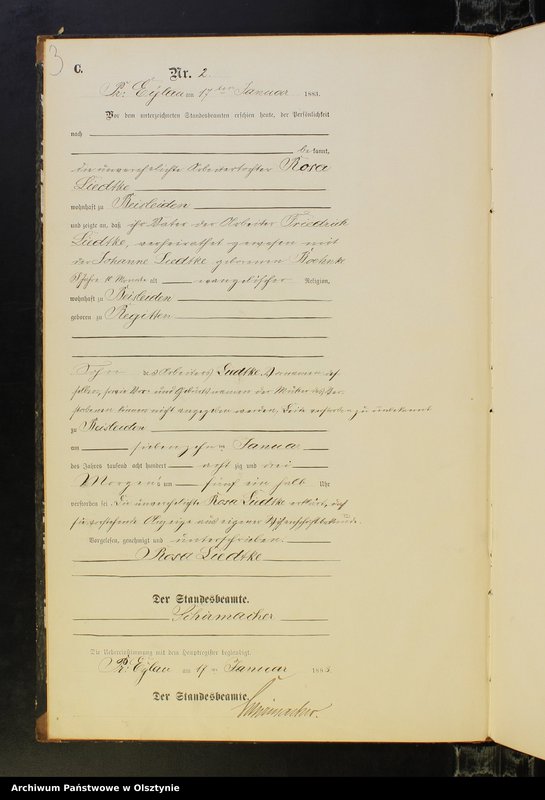 3
C.
Nr. 2.
Pr: Eylau am 17ten Januar 1883.
Vor dem unterzeichneten Standesbeamten erschien heute, der Persönlichkeit
nach
be kannt,
die unverehelichte Arbeitertochter Rosa
Liedtke
wohnhaft zu Beisleiden
und zeigte an, daß ihr Vater der Arbeiter Friedrich
Liedtke, verheirathet gewesen mit
der Johanne Liedtke geborenen
Jahre 10 Monate alt evangelischer Religion,
wohnhaft zu Beisleiden
geboren zu Regitten
Sohn des Arbeiters Liedtke. Vornamen des-
selben, sowie Vor- und Geburtsnamen der Mutter des Ver-
storbenen können nicht angegeben werden,
zu Beisleiden
am siebenzehn Januar
des Jahres tausend acht hundert acht zig und drei
Morgens um fünf ein halb Uhr
verstorben sei. Die unverehelichte Rosa Liedtke erklärt, daß
sie vorstehende Anzeige aus eigener Wissenschaft bekunde.
Vorgelesen, genehmigt und unterschrieben.
Rosa Liedtke
Der Standesbeamte.
Schumacher
Die Uebereinstimmung mit dem Hauptregister beglaubigt.
Pr: Eylau am 17ten Januar 1883.
Der Standesbeamte.
Schumacher.
Archiwum Państwowe w Olsztynie